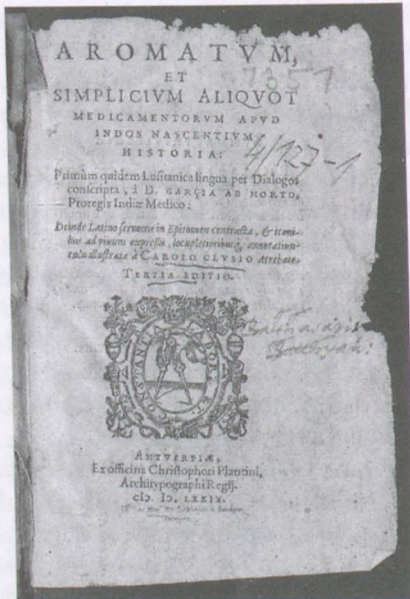 AROMATVM,
ET
7351
SIMPLICIVM ALIQVOT
MEDICAMENTORVM APVD
INDOS NASCENTIVM
HISTORIA:
4/127-1
Primùm quidem Lusitanica lingua per Dialogos
conscripta, à D. GARÇIA AB HORTO,
Proregis Indiæ Medico:
Deinde Latino sermone in Epitomen contracta, & iconi-
bus ad viuum expressis, locupletioribusq́; annotatiun-
culis illustrata à CAROLO CLVSIO Atrebate.
TERTIA EDITIO.
CONSTANTIA ET LABORE
ANTVERPIÆ,
Ex officina Christophori Plantini,
Architypographi Regij.
CIƆ. IƆ. LXXIX.